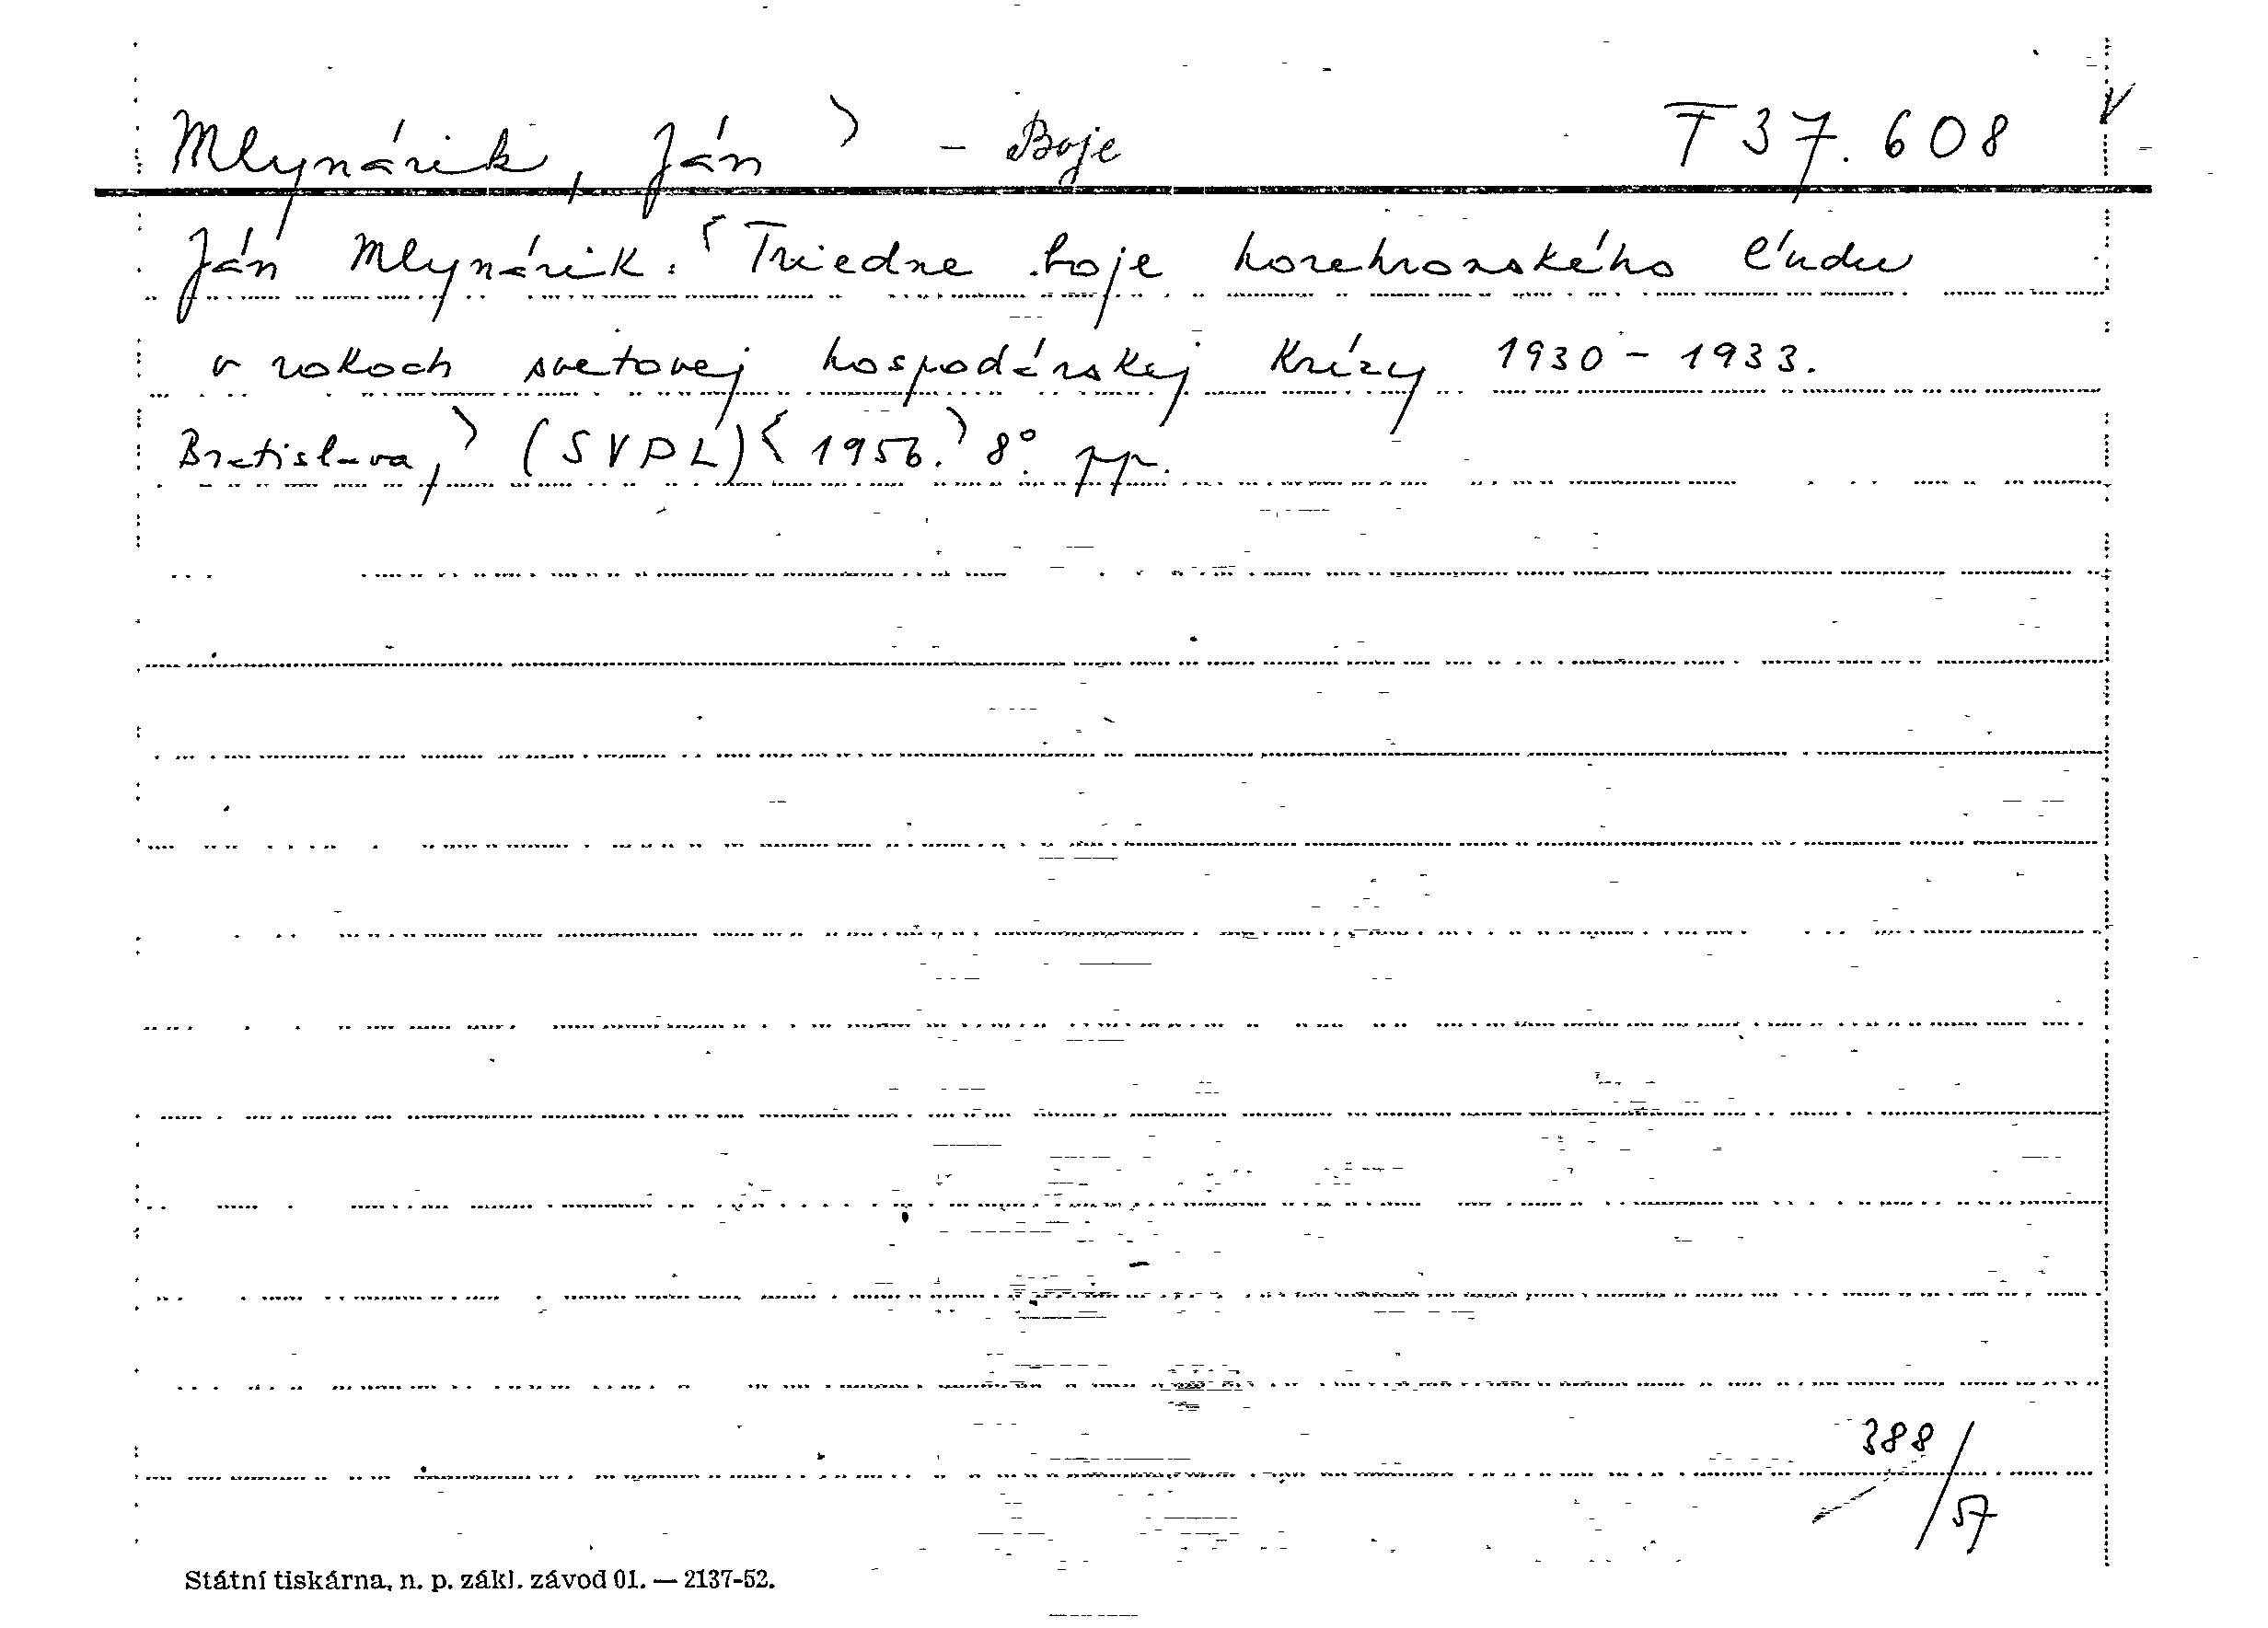 Mlynárik, Ján > - Boje T 37.608 V
Ján Mlynárik: <Triedne boje horehronského ľudu
v rokoch svetovej hospodárskej krízy 1930 - 1933.
Bratislava,> (SVPL) <1956.> 8°. pp.
388/57
Státní tiskárna, n. p. zákl. závod 01. — 2137-52.